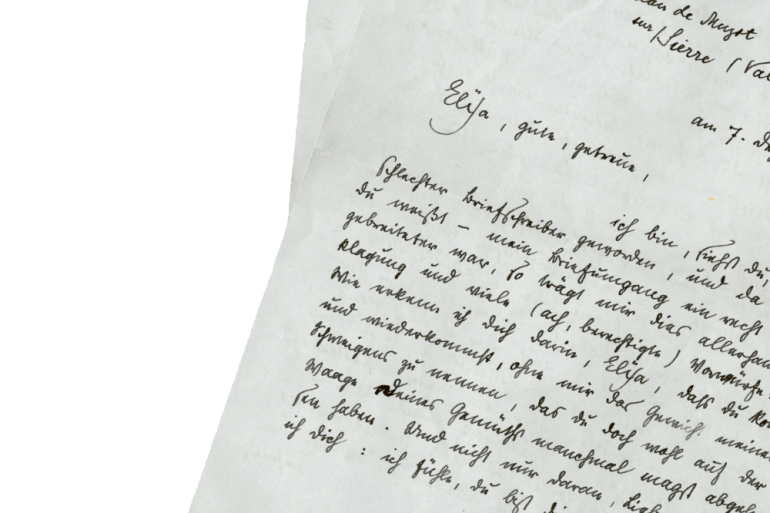 de Muzot
sur Sierre (Va
am 7. De
Elija, gute, getreue,
ich bin, siehst du,
schlechter Briefschreiber geworden, und da
du weißt – mein Briefumgang ein recht
gebreiteter war, so trägt mir dies allerhan
klagung und viele (ach, berechtigte) Vorwürfe
Wie erkenn ich dich darin, Elija, daß du ko
und wiederkommst, ohne mir das Gewicht meine
Schweigens zu nennen, das du doch wohl auf der
Waage Deines Gemüths manchmal magst abgel
sen haben. Und nicht nur daran, lieb
ich dich: ich fühle, du bist